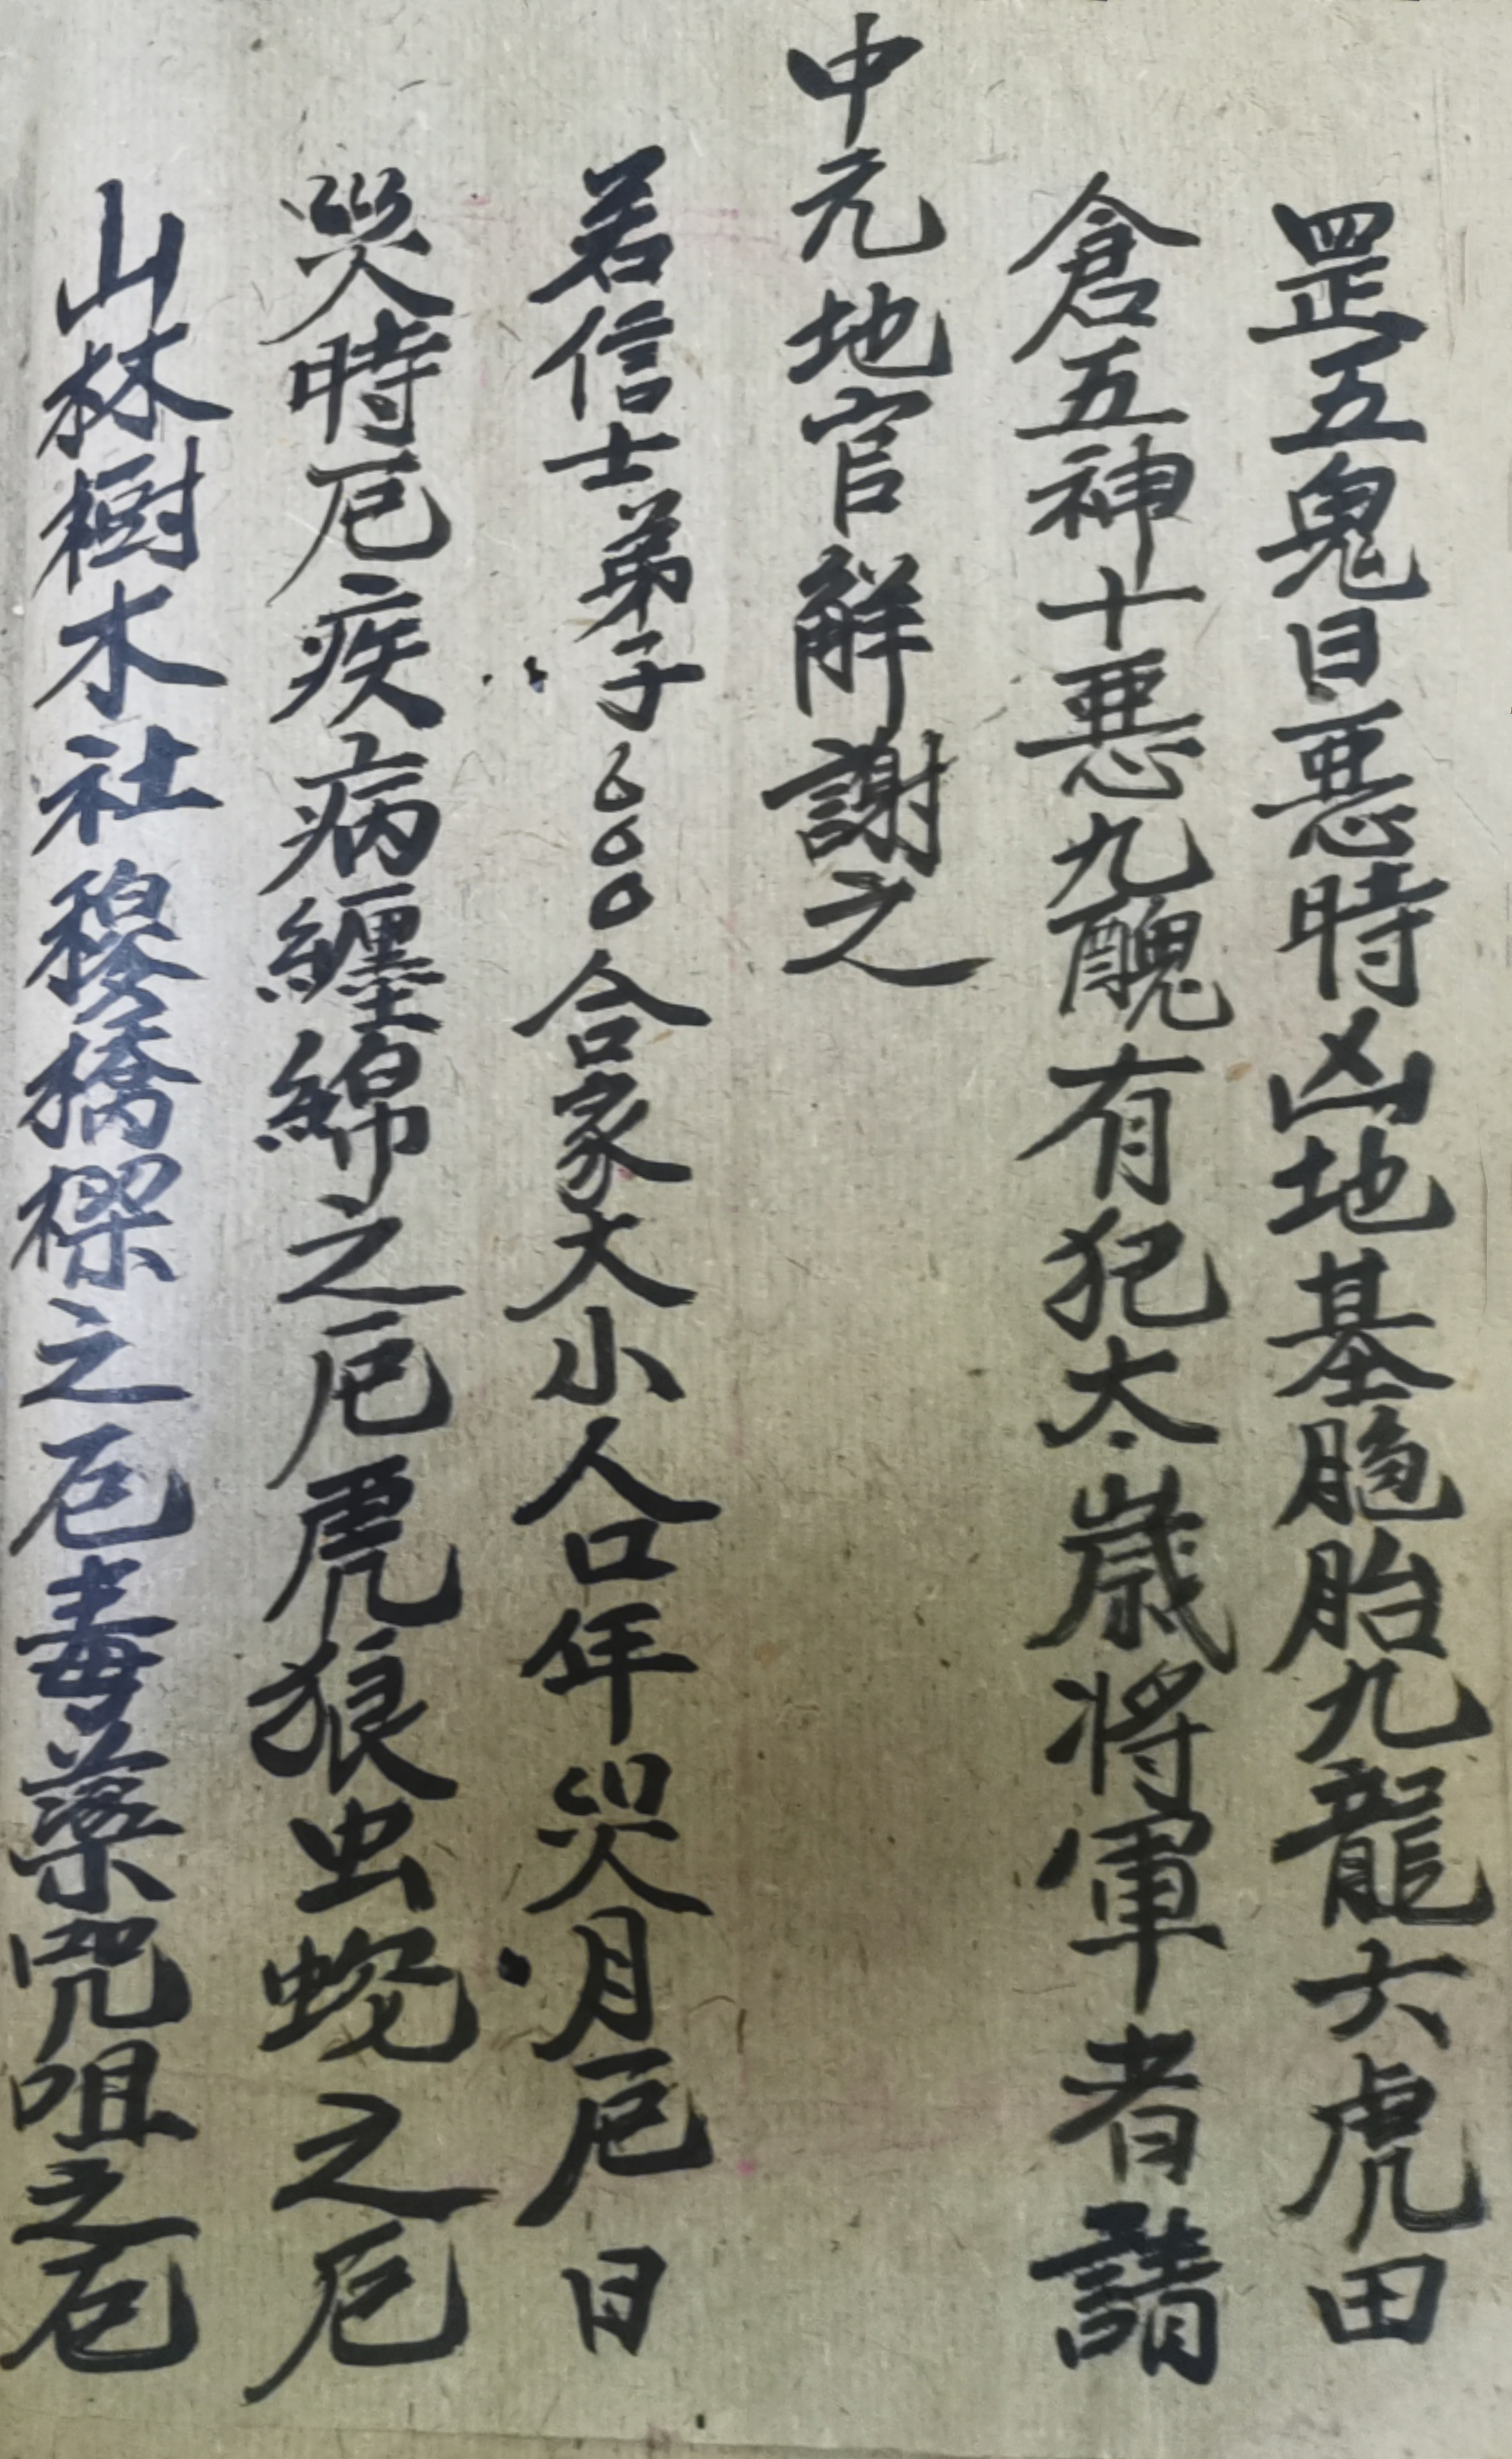 罡五鬼日惡時凶地基胞胎九龍六虎田
倉五神十惡九醜有犯太歲將軍者請
中元地官解謝之
若信士弟子○○○合家大小人口年災月厄日
災時厄疾病纏綿之厄虎狼虫蛇之厄
山林樹木社稷橋樑之厄毒藥咒咀之厄